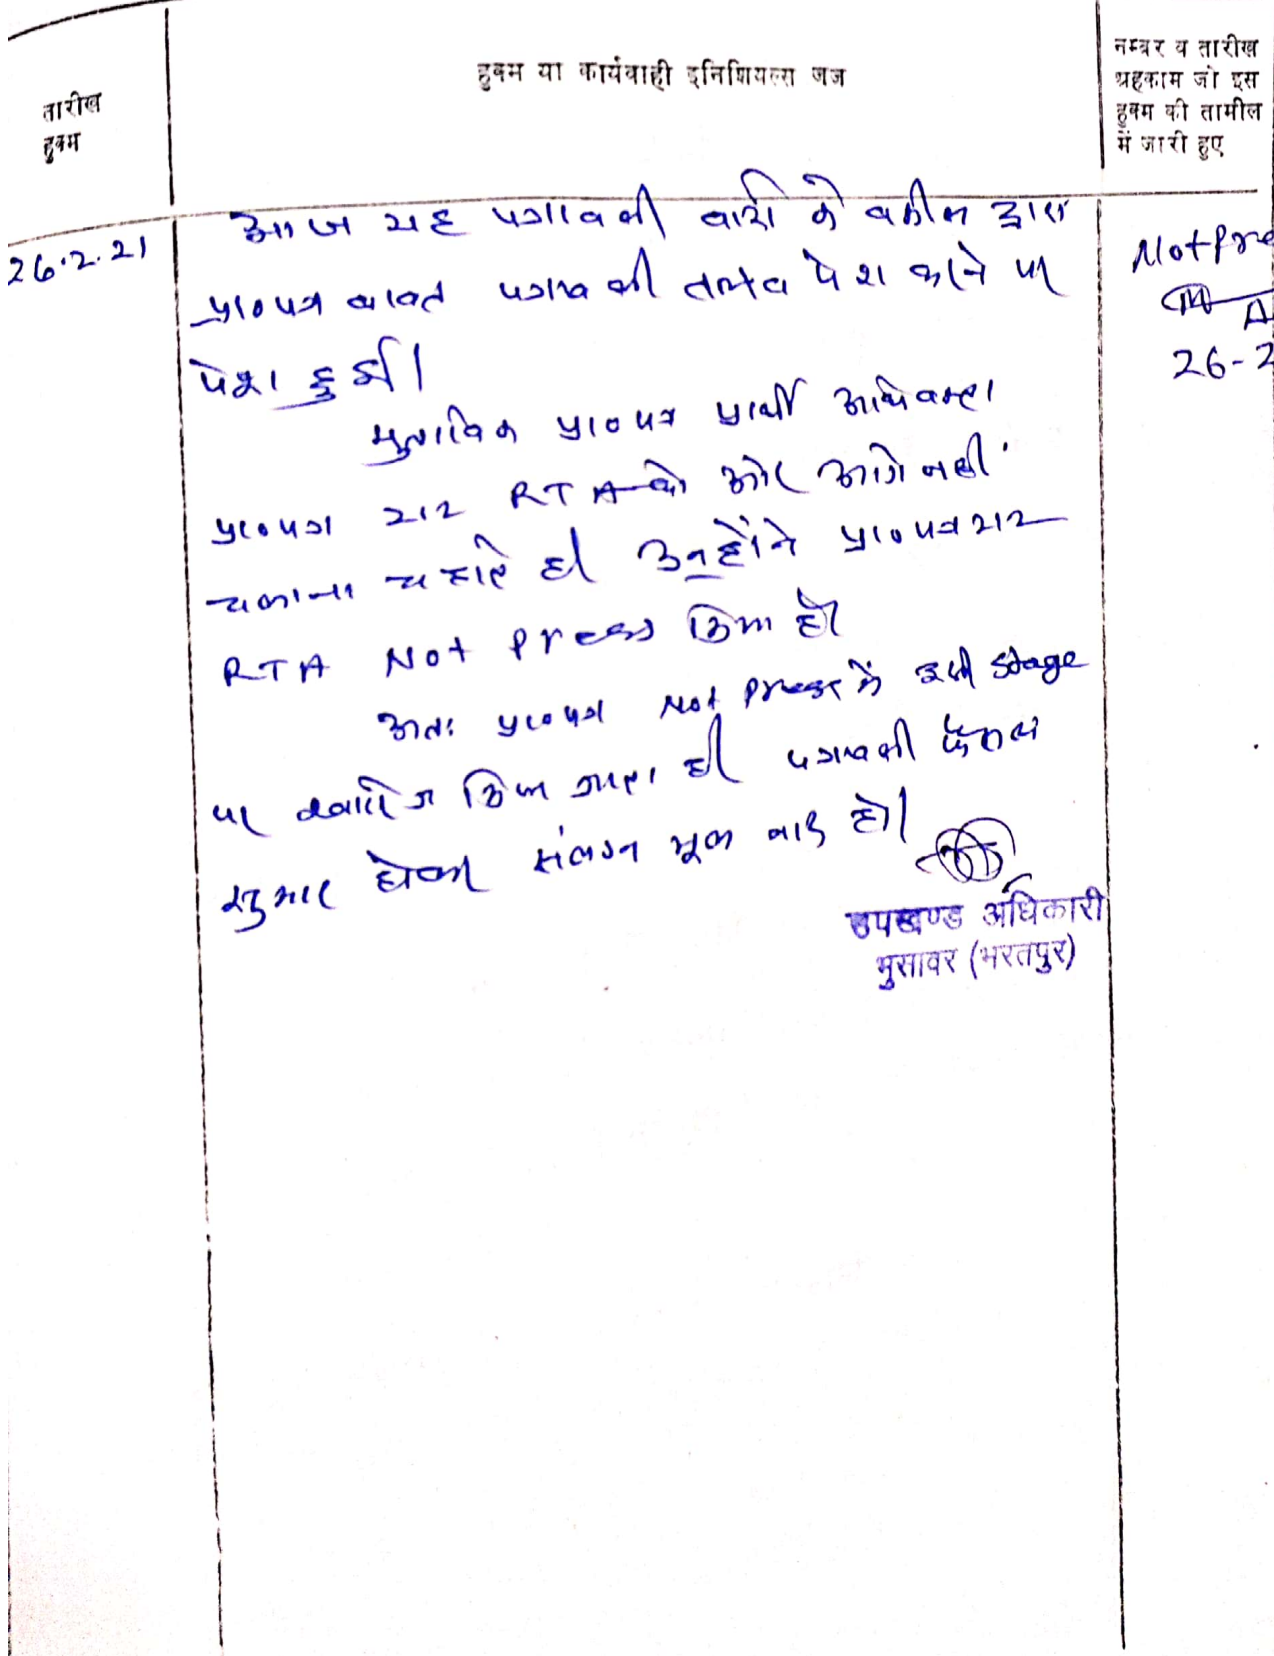 तारीख
हुक्म
हुक्म या कार्यवाही इनिशियल्स जज
नम्बर व तारीख
अहकाम जो इस
हुक्म की तामील
में जारी हुए
26.2.21
आज यह पत्रावली वादी के वकील द्वारा
प्रा०पत्र बावत पत्रावली तलब पेश करने पर
पेश हुई।
मुताबिक प्रा०पत्र प्रार्थी अधिवक्ता
प्रा०पत्र 212 RTA को और आगे नहीं
चलाना चाहते है। उन्होंने प्रा०पत्र 212
RTA Not Press किया है।
अतः प्रा०पत्र Not Press में इसी stage
पर खारिज किया जाता है। पत्रावली फैसल
सुमार होकर संलग्न मूल वाद हो।
Not Pre
26-2
उपखण्ड अधिकारी
भुसावर (भरतपुर)